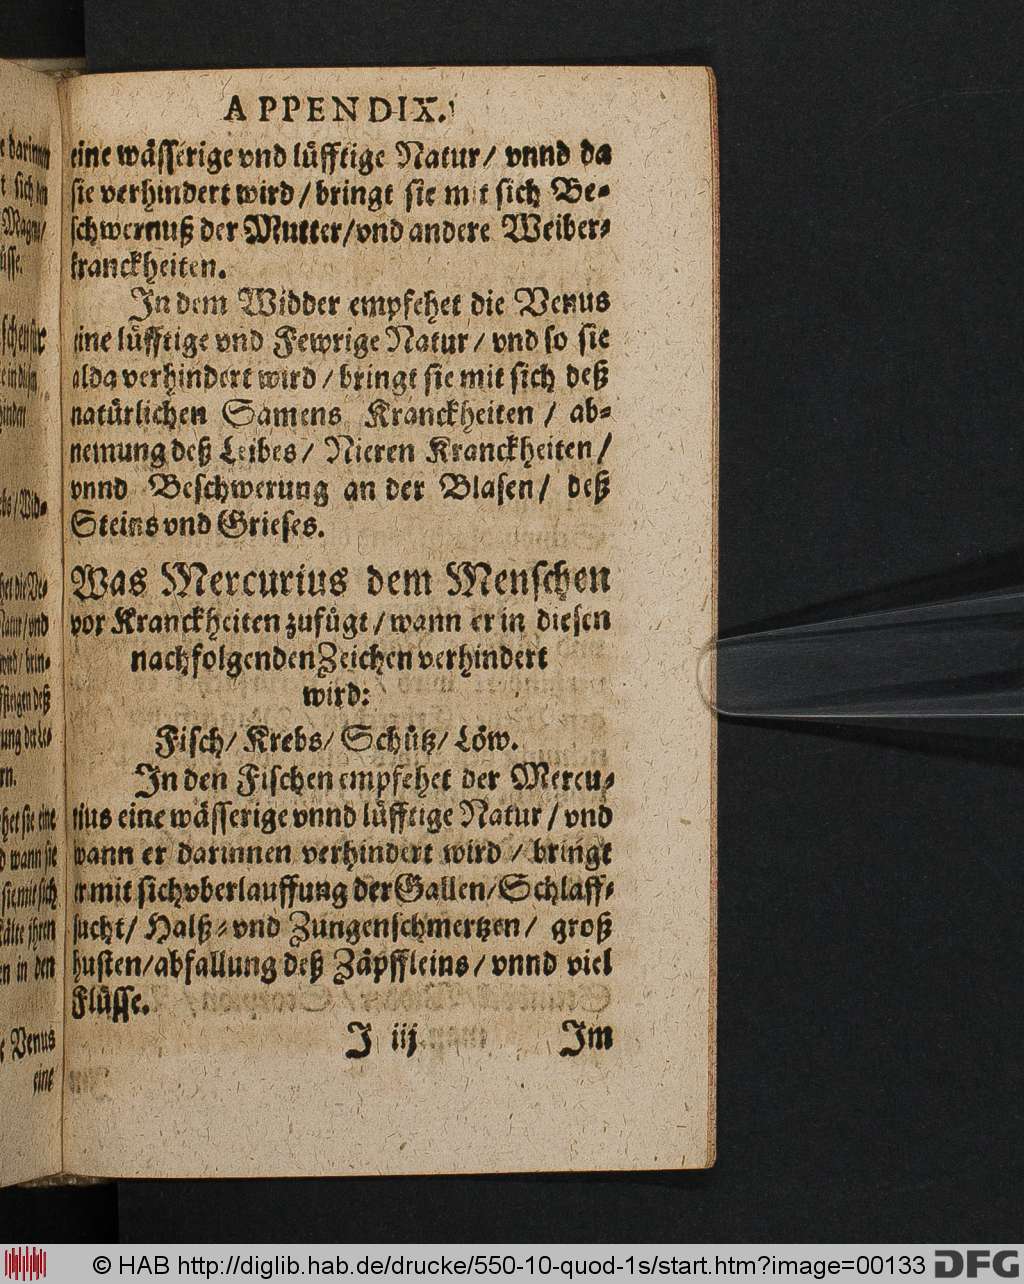 APPENDIX.
eine wässerige vnd lüfftige Natur/ vnnd da
sie verhindert wird/ bringt sie mit sich Be-
schwernuß der Mutter/ vnd andere Weiber-
kranckheiten.
In dem Widder empfehet die Venus
eine lüfftige vnd Fewrige Natur/ vnd so sie
alda verhindert wird/ bringt sie mit sich deß
natürlichen Samens Kranckheiten/ ab-
nemung deß Leibes/ Nieren Kranckheiten/
vnnd Beschwerung an der Blasen/ deß
Steins vnd Grieses.
Was Mercurius dem Menschen
vor Kranckheiten zufügt/ wann er in diesen
nachfolgenden Zeichen verhindert
wird:
Fisch/ Krebs/ Schütz/ Löw.
In den Fischen empfehet der Mercu-
rius eine wässerige vnnd lüfftige Natur/ vnd
wann er darinnen verhindert wird/ bringt
er mit sich vberlauffung der Gallen/ Schlaff-
sucht/ Halß- vnd Zungenschmertzen/ groß
husten/ abfallung deß Zäpffleins/ vnnd viel
Flüsse.
J iij Im
e darinnen
t sich
Magen/
üsse.
/Wid-
Natur/vnd
brin-
deß
rn.
het sie eine
wann sie
sie mit sich
kälte ihren
en in den
e Venus
eine
© HAB http://diglib.hab.de/drucke/550-10-quod-1s/start.htm?image=00133 DFG